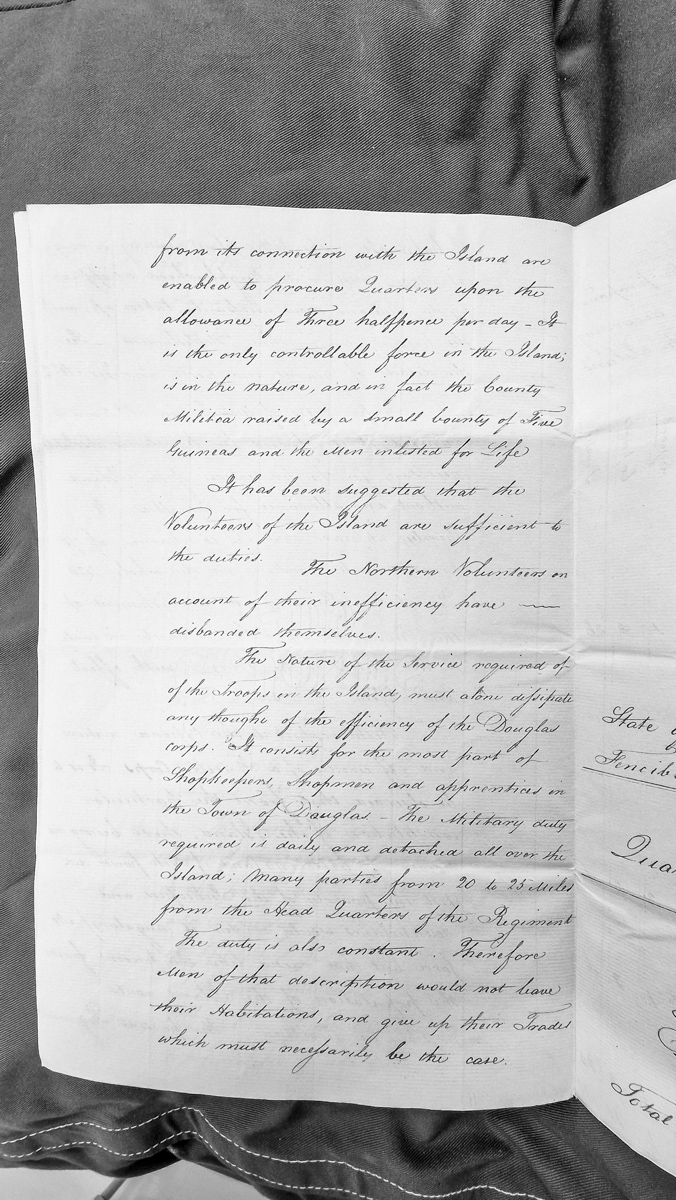 from its connection with the Island are
enabled to procure Quarters upon the
allowance of Three halfpence per day - It
is the only controllable force in the Island;
is in the nature, and in fact the County
Militia raised by a small bounty of Five
Guineas and the Men inlisted for Life
It has been suggested that the
Volunteers of the Island are sufficient to
the duties. The Northern Volunteers on
account of their inefficiency have —
disbanded themselves.
The Nature of the Service required of
of the Troops in the Island, must alone dissipate
any thought of the efficiency of the Douglas
corps. It consists for the most part of
Shopkeepers, Shopmen and apprentices in
the Town of Douglas - The Military duty
required is daily and detached all over the
Island; Many parties from 20 to 25 Miles
from the Head Quarters of the Regiment
The duty is also constant. Therefore
Men of that description would not leave
their Habitations, and give up their Trades
which must necessarily be the case.
State
Fencib
Qua
Total